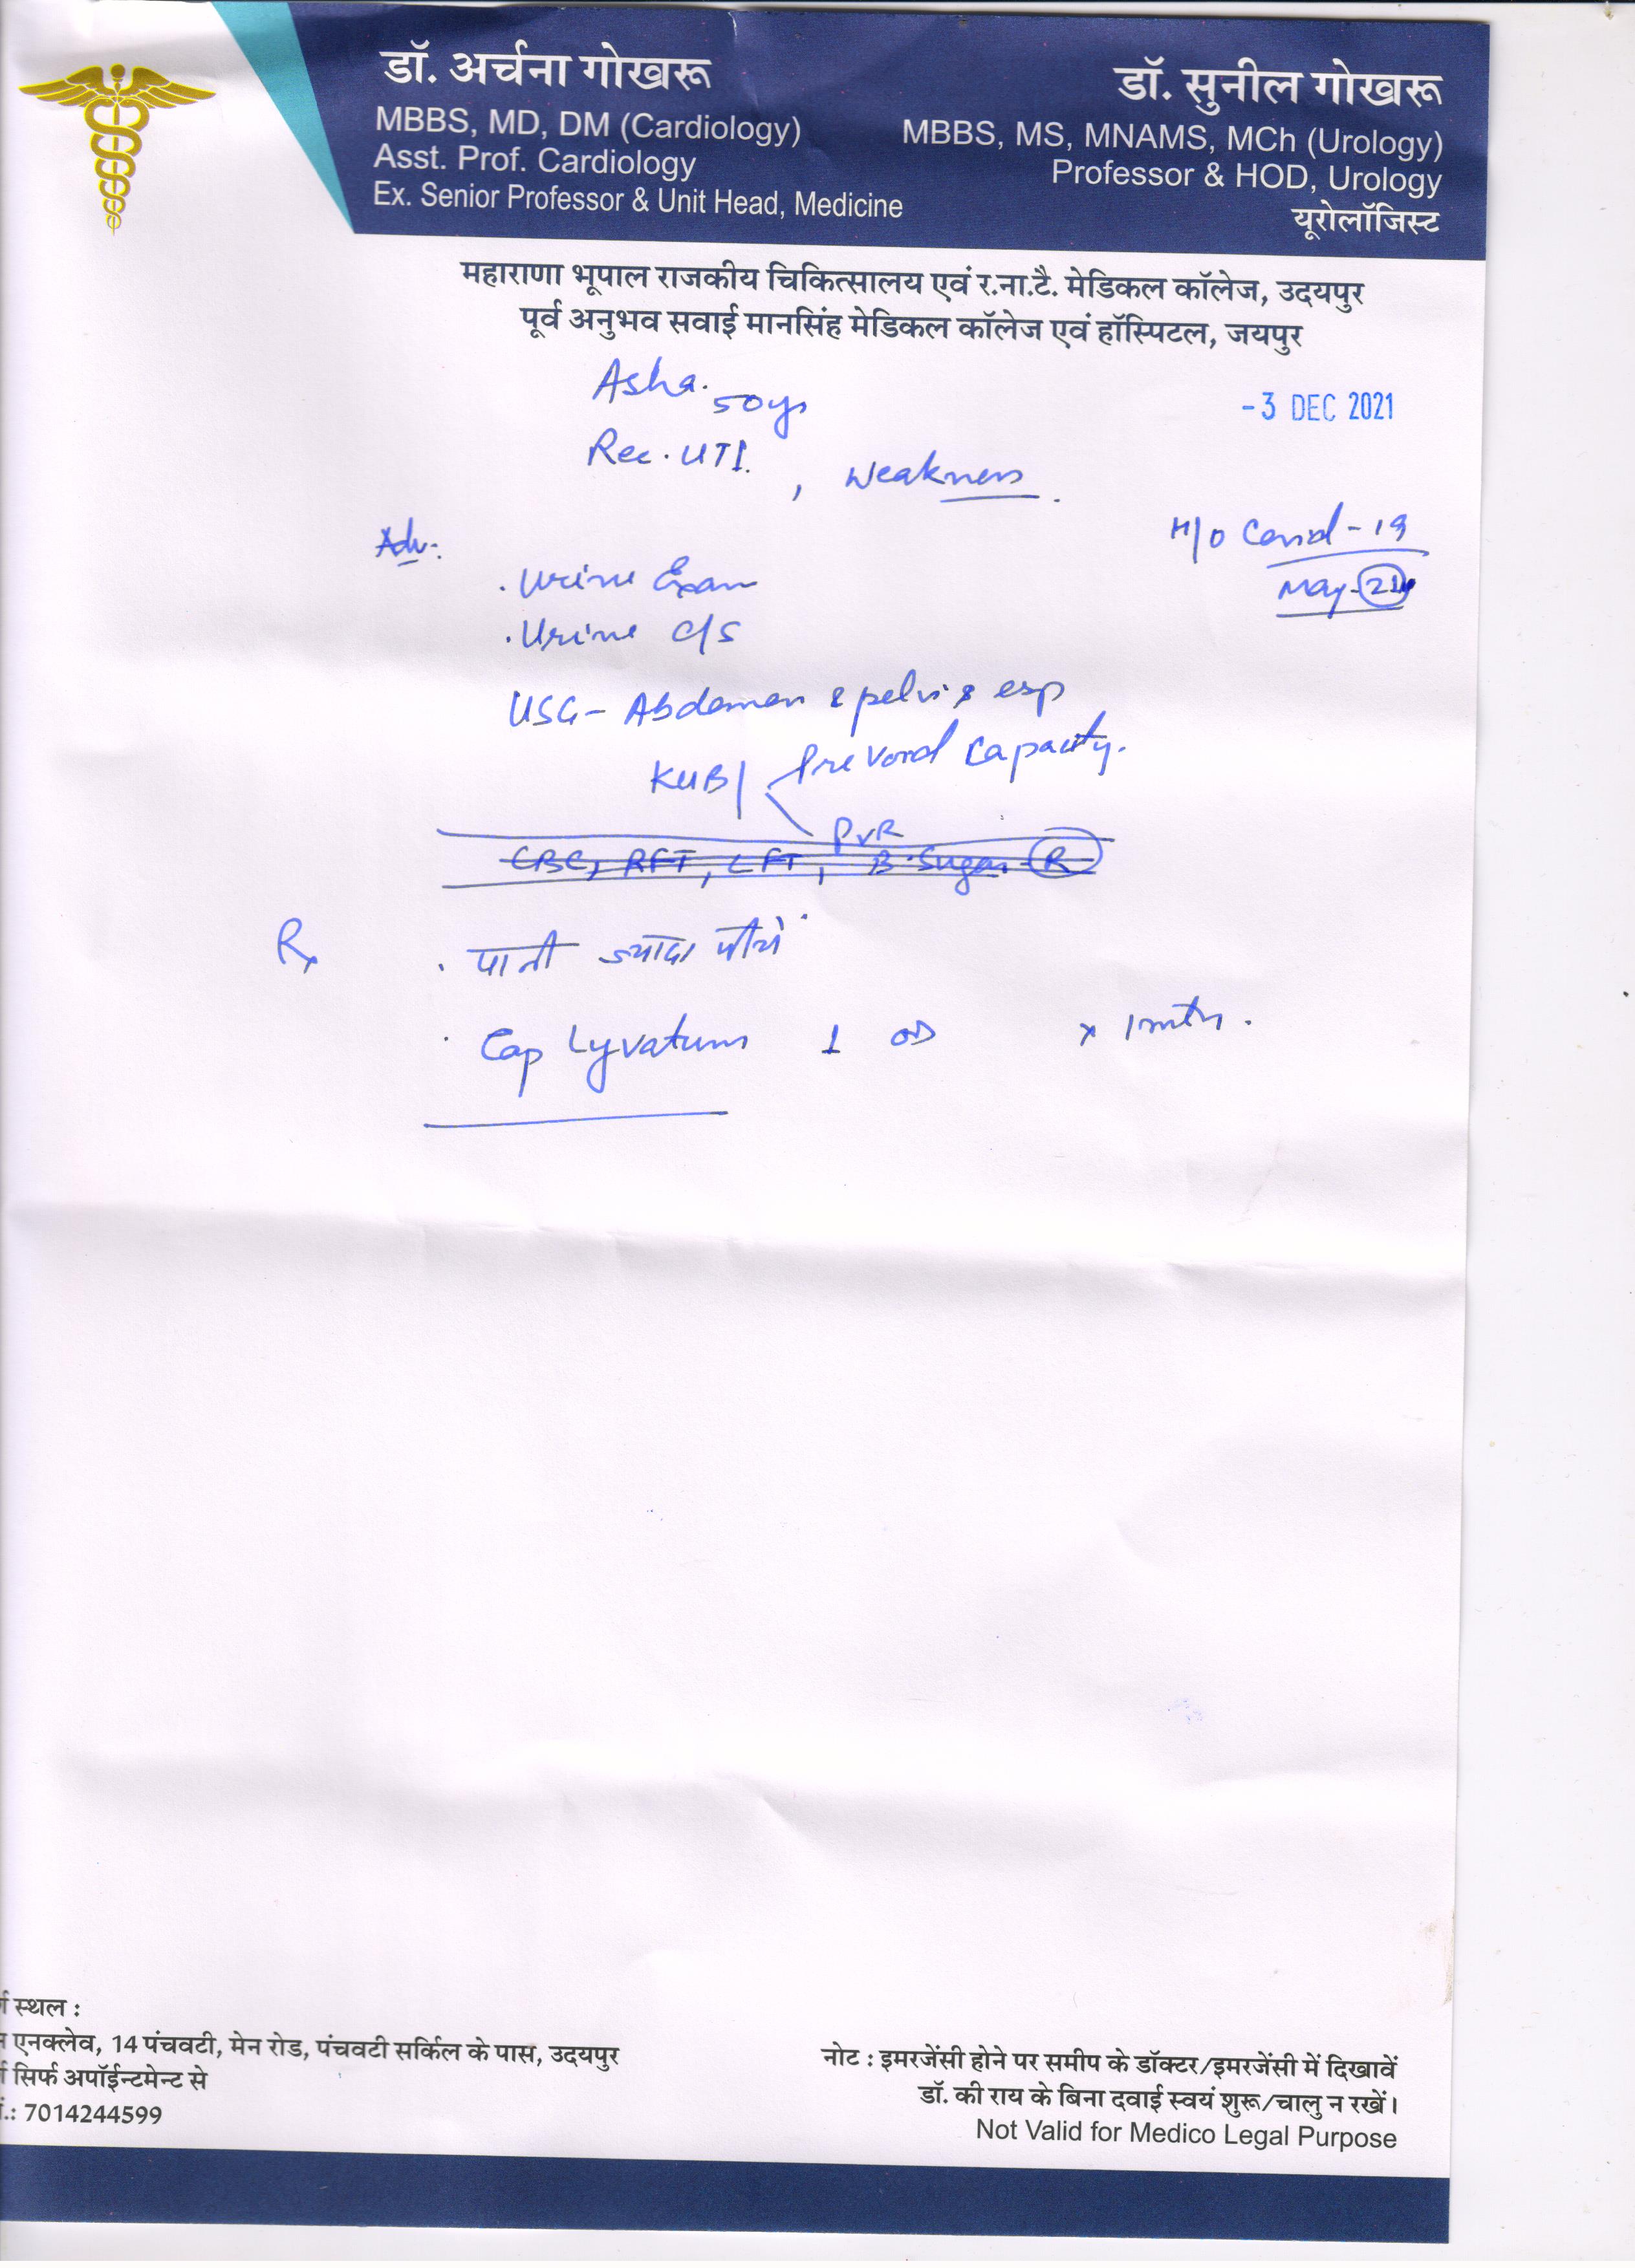 डॉ. अर्चना गोखरू
MBBS, MD, DM (Cardiology)
Asst. Prof. Cardiology
Ex. Senior Professor & Unit Head, Medicine
डॉ. सुनील गोखरू
MBBS, MS, MNAMS, MCh (Urology)
Professor & HOD, Urology
यूरोलॉजिस्ट
महाराणा भूपाल राजकीय चिकित्सालय एवं र.ना.टै. मेडिकल कॉलेज, उदयपुर
पूर्व अनुभव सवाई मानसिंह मेडिकल कॉलेज एवं हॉस्पिटल, जयपुर
Asha. 50ys
-3 DEC 2021
Rec. UTI. , Weakness.
H/O Covid-19
May-21
Adv:
. Urine Exam
. Urine C/S
USG- Abdomen & pelvis esp
KUB/ Prevoid Capacity.
PVR
CBC, RFT, LFT, B. Sugar R
Rx
. पानी ज्यादा पीयें
. Cap Lyvatum 1 OD x 1 mth.
स्थल :
एनक्लेव, 14 पंचवटी, मेन रोड, पंचवटी सर्किल के पास, उदयपुर
सिर्फ अपॉईन्टमेन्ट से
.: 7014244599
नोट : इमरजेंसी होने पर समीप के डॉक्टर/इमरजेंसी में दिखावें
डॉ. की राय के बिना दवाई स्वयं शुरू/चालु न रखें।
Not Valid for Medico Legal Purpose